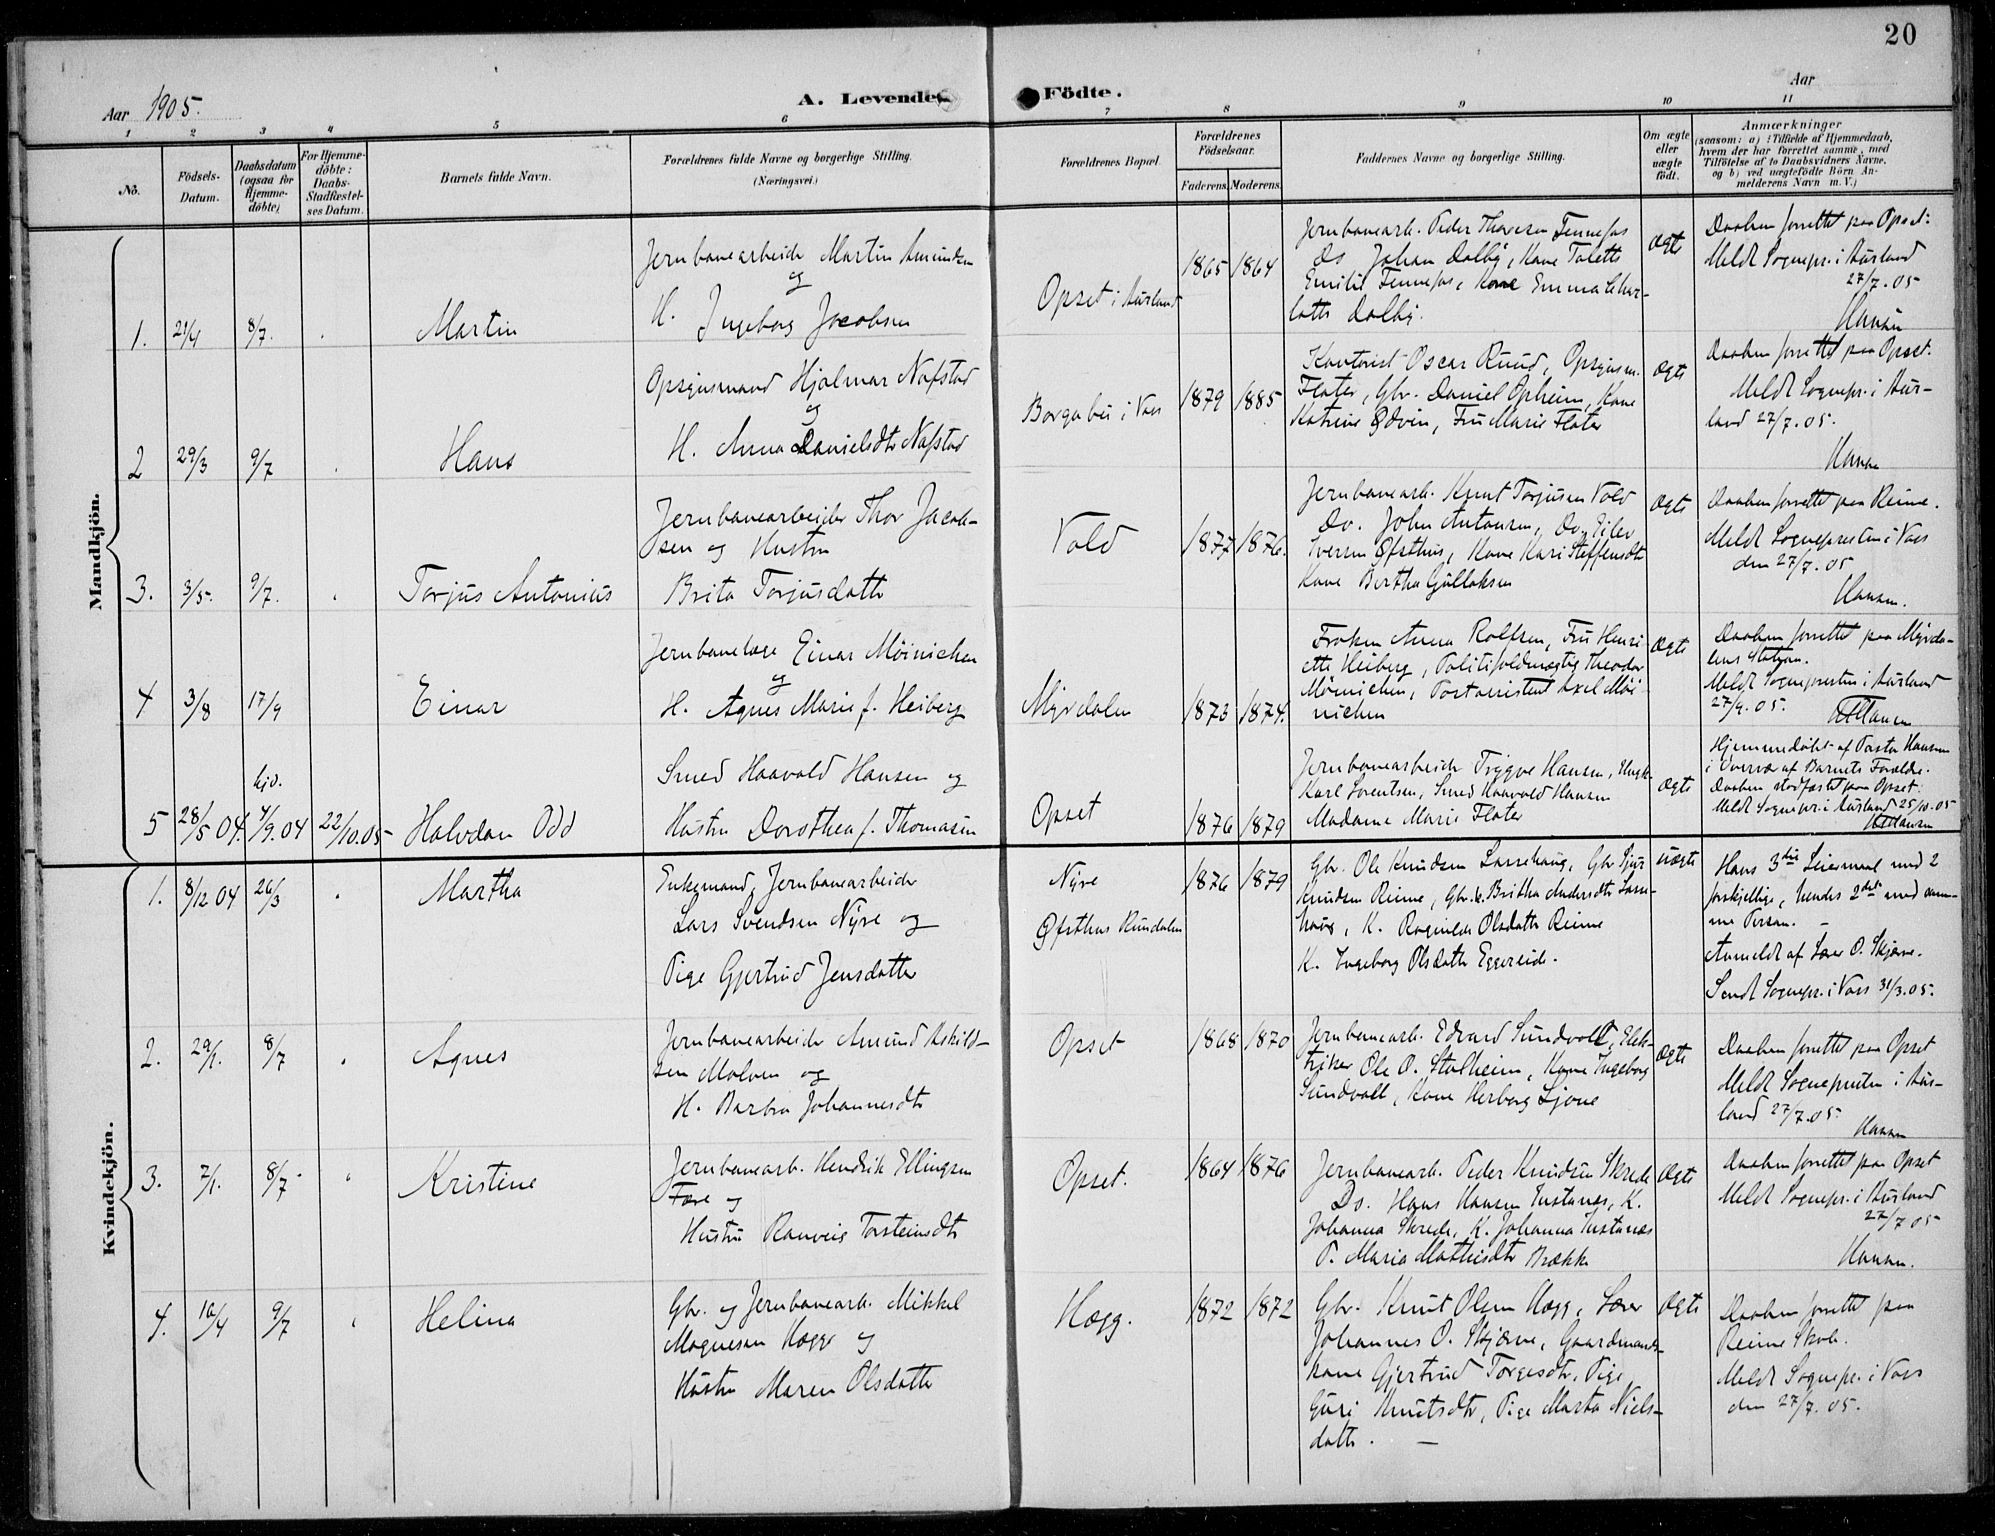 20
Aar 1905.
A. Levende Födte.
Aar
1 2 3 4 5 6 7 8 9 10 11
No.
Födsels-
Datum.
Daabsdatum
(ogsaa for
Hjemme-
döbte)
For Hjemme-
döbte:
Daabs-
Stadfæstel-
ses Datum.
Barnets fulde Navn.
Forældrenes fulde Navne og borgerlige Stilling.
(Næringsvei.)
Forældrenes Bopæl.
Forældrenes
Födselsaar.
Faderens. Moderens.
Faddernes Navne og borgerlige Stilling.
Om ægte
eller
uægte
födt.
Anmærkninger
(saasom: a) i Tilfælde af Hjemmedaab,
hvem der har forrettet samme, med
Tilföielse af to Daabsvidners Navne,
og b) ved uægtefödte Börn An-
melderens Navn m. V.)
Mandkjön.
1. 21/4 8/7. Martin
Jernbanearbeider Martin Amundsen
og
H. Ingeborg Jacobsen
Opset i Aurland
1865 1864
Jernbanearb. Peder Thoresen Tennefos
Do Johan Dalby, Kone Talette
Emilie Tennefos, Kone Emma Char-
lotte Dalby.
Ægte
Daaben forrettet paa Opset.
Meldt Sognepr. i Aurland
27/7.05
Hansen
2 29/3 9/7 Hans
Opsynsmand Hjalmar Nafstad
og
H. Anna Danielsdtr Nafstad
Borgabu i Vos
1879 1885
Kontorist Oscar Ruud, Opsynsm.
Flater, Gbr. Daniel Opheim, Kone
Katrine Ødvin, Fru Marie Flater
Ægte
Daaben forrettet paa Opset.
Meldt Sognepr. i Aur-
land 27/7.05.
Hansen
3. 3/5. 9/7. Torjus Antonius
Jernbanearbeider Thor Jacob-
sen og Hustru
Brita Torjusdatter
Vold
1877 1876.
Jernbanearb. Knut Torjusen Vold
Do. John Antonsen, Do, Eilev
Iversen Øfsthus, Kone Kari Steffensdtr
Kone Bertha Gullaksen
Ægte
Daaben forrettet paa Reime.
Meldt Sognepresten i Vos
den 27/7.05
Hansen.
4 3/8 17/9 Einar
Jernbanelæge Einar Möinichen
og
H. Agnes Marie f. Heiberg
Myrdalen
1873 1874.
Fröken Anna Rolfsen, Fru Henri-
ette Heiberg, Politifuldmægtig Theodor
Möinichen, Postassistent Axel Möi-
nichen
Ægte
Daaben forrettet paa Myrda-
lens Station.
Meldt Sognepresten i Aurland
27/9.05.
Hansen
hjd.
5 28/5 04. 4/9.04 22/10.05 Halvdan Odd
Smed Haavald Hansen og
Hustru Dorothea f. Thomasen
Opset
1876 1879
Jernbanearbeider Trygve Hansen,
Karl Lorentsen, Smed Haavald Hansen
Madame Marie Flater
Ægte
Hjemmedöbt af Pastor Hansen
i Overvær af Barnets Forældre.
Daaben stadfæstet paa Opset.
Meldt Sognepr. i Aurland 25/10.05
Hansen
Kvindekjön.
1. 8/12 04 26/3 Martha
Enkemand, Jernbanearbeider
Lars Svendsen Nyre og
Pige Gjertrud Jensdatter
Nyre
Øfsthus Rundalen
1876 1879
Gbr. Ole Knudsen Lassehaug, Gbr
Knudsen Reime, Gbr.k. Britha Andersdtr
K. Ragnilde Olsdatter Reime
K. Ingeborg Olsdatter Eggereide.
uægte
Hans 3die Leiermaal med 2
forskjellige, hendes 2det med sam-
me Person. -
Anmeldt af Lærer O. Skjerve.
Sendt Sognepr. i Vos 31/3.05.
2. 29/1. 8/7 Agnes
Jernbanearbeider Amund Askild-
sen Molven og
H. Barbra Johannesdtr
Opset
1868 1870
Jernbanearb. Edvard Sundvoll, Elek-
triker Ole O. Stalheim, Kone Ingeborg
Sundvoll, Kone Herborg Ljone
Ægte
Daaben forrettet paa Opset
Meldt Sognepresten i Aur-
land 27/7.05.
Hansen
3. 7/1. 8/7 Kristine
Jernbanearb. Hendrik Ellingsen
Fære og
Hustru Ranveig Torsteinsdtr
Opset.
1864 1876
Jernbanearb. Peder Knudsen Skrede
Do. Hans Hansen Tustanes, K.
Johanna Skrede, K. Johanna Tustanæs
P. Maria Mathisdtr Brække
Ægte
Daaben forrettet paa Opset
Meldt Sognepr. i Aurland
27/7 05
Hansen.
4. 10/4 9/7 Helina
Gbr. og Jernbanearb. Mikkel
Magnesen Hægg og
Hustru Maren Olsdatter
Hægg.
1872 1872
Gbr. Knut Olsen Hægg, Lærer
Johannes O. Skjerve, Gaardmands-
kone Gjertrud Torgesdtr, Pige
Guri Knutsdtr, Pige Marta Niels-
datter. -
Ægte
Daaben forrettet paa
Reime Skole.
Meldt Sognepr. i Vos
den 27/7.05.